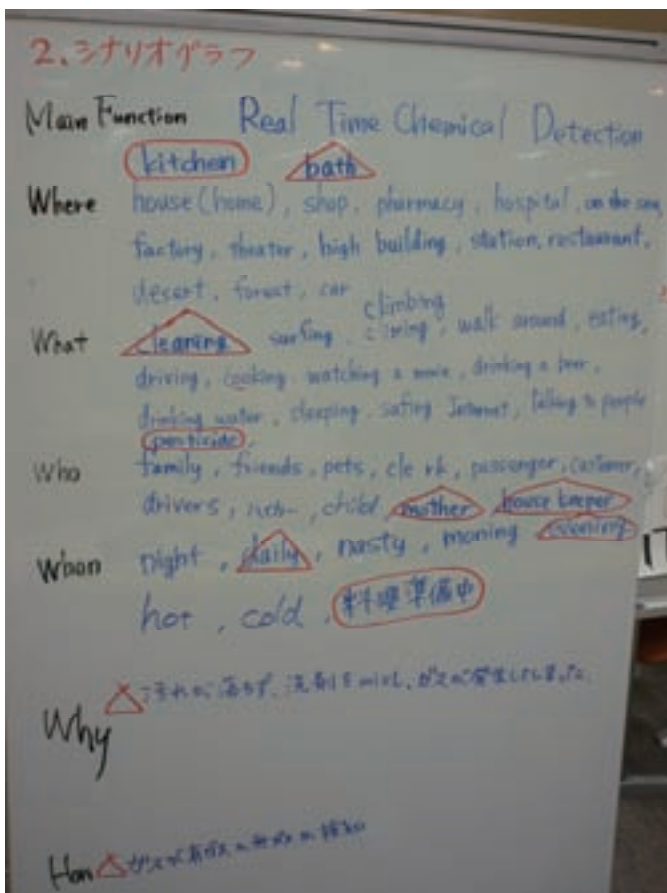 2、シナリオグラフ
Main Function Real Time Chemical Detection
kitchen bath
Where house (home), shop, pharmacy, hospital, on the sea,
factory, theater, high building, station, restaurant,
desert, forest, car
climbing
What cleaning surfing, climing, walk around, eating,
driving, cooking, watching a movie, drinking a beer,
drinking water, sleeping, safing Internet, talking to people
pesticide,
Who family, friends, pets, clerk, passenger, customer,
drivers, child, mother house keeper
When night, daily, nasty, moning evening
hot, cold, 料理準備中
Why 汚れが落ちず、洗剤を し、ガスが発生してしまった
How ガスが